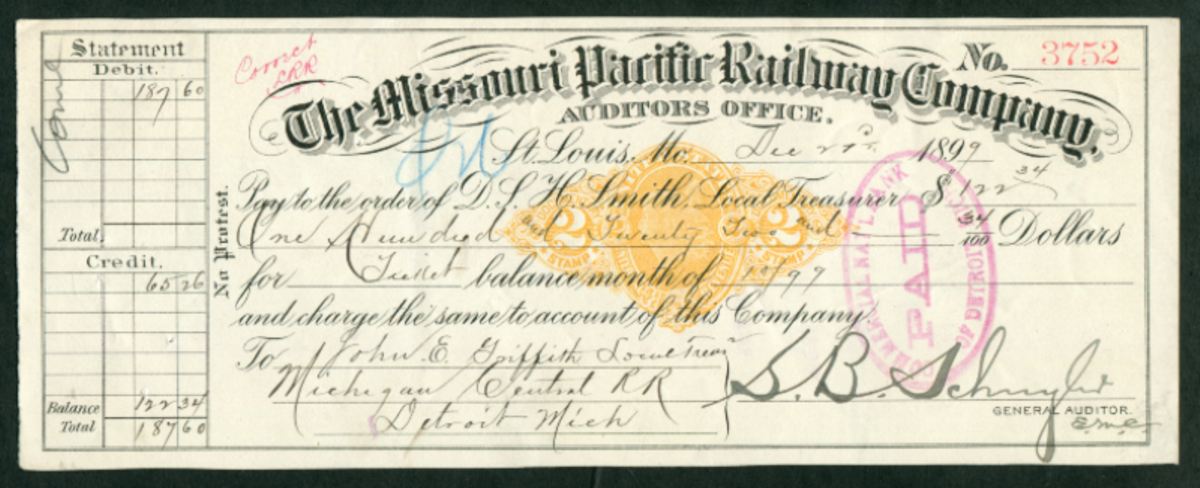 Statement
Debit.
187 60
Total.
Credit.
65 26
Balance 122 34
Total 187 60
No Protest.
Correct
No. 3752
The Missouri Pacific Railway Company.
AUDITORS OFFICE.
St. Louis, Mo. Dec 1899
Pay to the order of D. S. H. Smith, Local Treasurer $ 122 34
One Hundred and Twenty Two and 34/100 Dollars
for Ticket balance month of 10/99
and charge the same to account of this Company
To John E. Griffith Local Treas
Michigan Central RR
Detroit Mich
2 2
STAMP STAMP
COMMERCIAL NAT'L BANK
PAID
OF DETROIT
S. B. Schuyler
GENERAL AUDITOR.